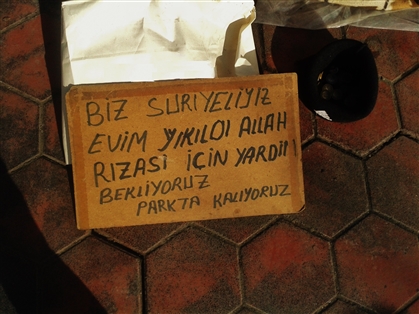 BİZ SURİYELİYİZ
EVİM YIKILDI ALLAH
RIZASI İÇİN YARDIM
BEKLİYORUZ
PARKTA KALIYORUZ